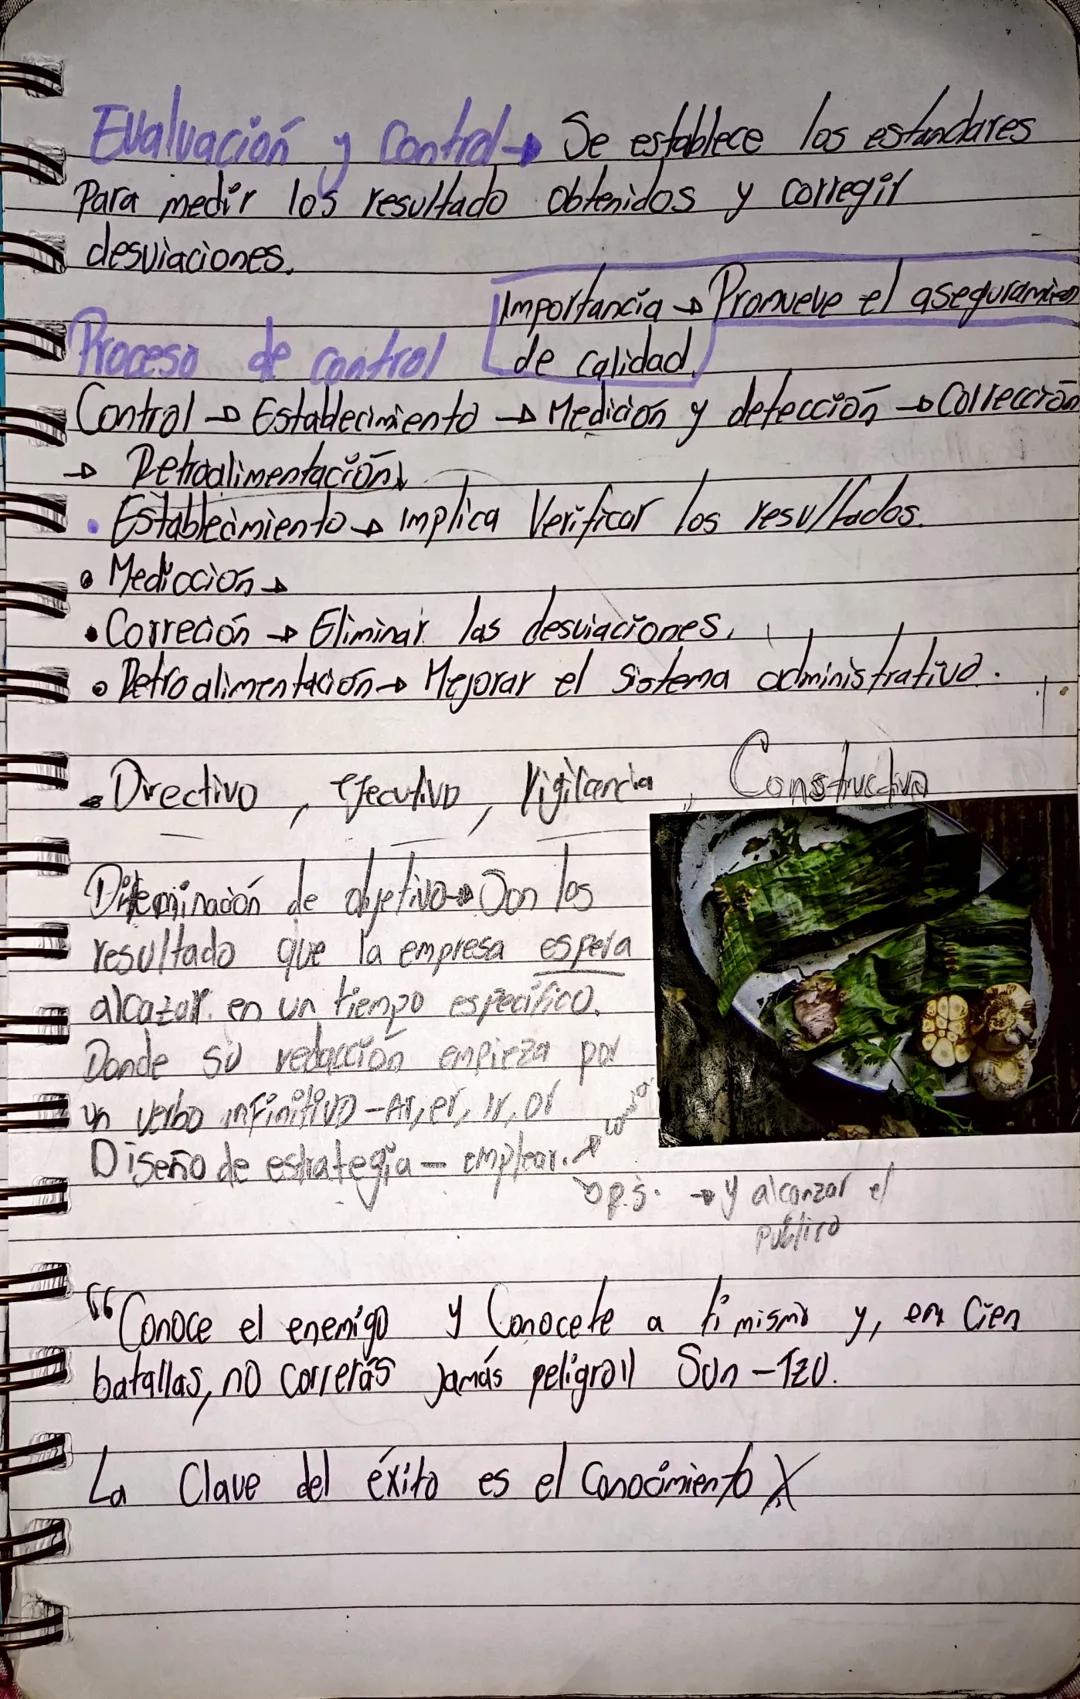 Evaluación y Control → Se establece los estandares
Para medir los resultado obtenidos y corregir
desviaciones.
Importancia → Promueve el aseguramien
de calidad.
Proceso de control
Control → Establecimiento → Medición y detección → Corrección
→ Retroalimentación
• Establecimiento → implica Verificar los resultados.
• Medicion →
• Correción → Eliminar las desviaciones.
• Retroalimentación → Mejorar el Sistema administrativo.
Directivo, ejecutivo, Vigilancia, Constructiva
Diterminación de objetivo → Son los
resultado que la empresa espera
alcazar en un tiempo específico.
Donde su redacción empieza por
un verbo infinitivo - Ar, er, ir, or
Diseño de estrategia - emplear. →
p.s. → y alcanzar el
publico
“Conoce el enemigo y Conocete a ti mismo y, en Cien
batallas, no correrás Jamás peligro” Sun-Tzu.
La Clave del éxito es el Conocimiento X